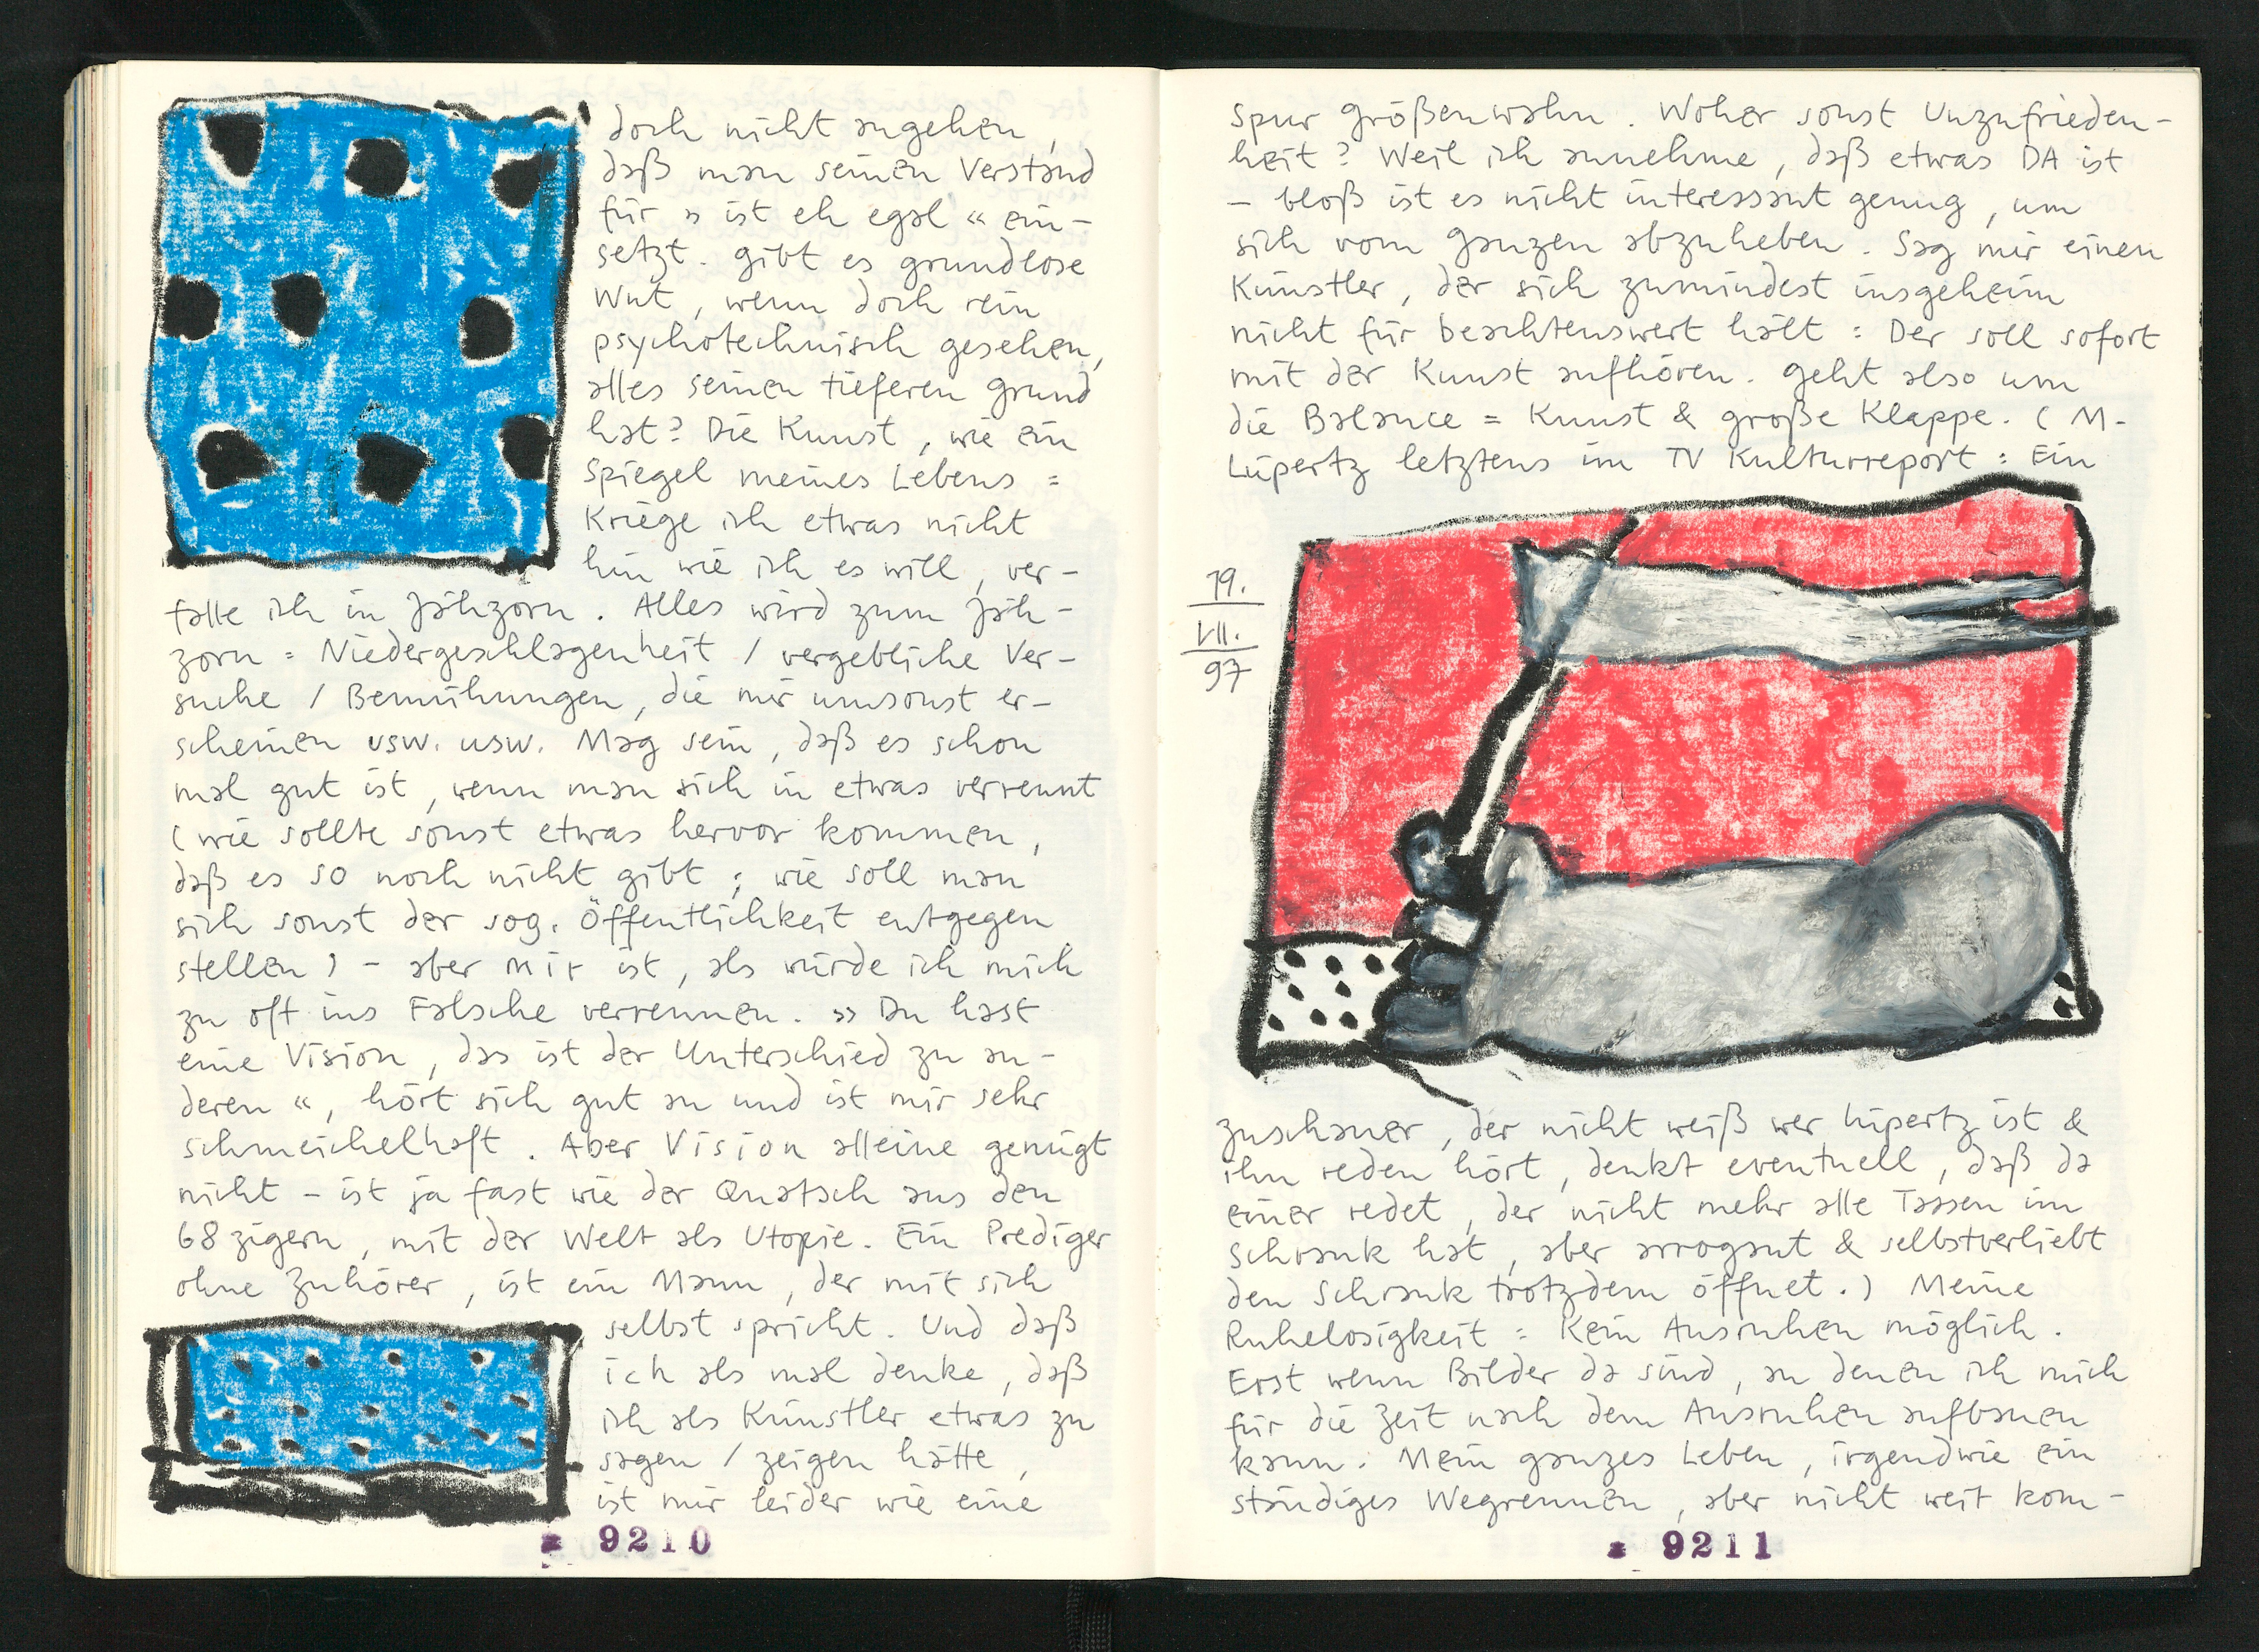 doch nicht angehen,
daß man seinen Verstand
für » ist eh egal « ein-
setzt. Gibt es grundlose
Wut, wenn doch rein
psychotechnisch gesehen,
alles seinen tieferen Grund
hat? Die Kunst, wie ein
Spiegel meines Lebens =
Kriege ich etwas nicht
hin wie ich es will, ver-
falle ich in Jähzorn. Alles wird zum Jäh-
zorn = Niedergeschlagenheit / vergebliche Ver-
suche / Bemühungen, die mir umsonst er-
scheinen usw. usw. Mag sein, daß es schon
mal gut ist, wenn man sich in etwas verrennt
(wie sollte sonst etwas hervor kommen,
daß es so noch nicht gibt; wie soll man
sich sonst der sog. Öffentlichkeit entgegen
stellen) – aber mir ist, als würde ich mich
zu oft ins Falsche verrennen. » Du hast
eine Vision, das ist der Unterschied zu an-
deren «, hört sich gut an und ist mir sehr
schmeichelhaft. Aber Vision alleine genügt
nicht – ist ja fast wie der Quatsch aus den
68zigern, mit der Welt als Utopie. Ein Prediger
ohne Zuhörer, ist ein Mann, der mit sich
selbst spricht. Und daß
ich als mal denke, daß
ich als Künstler etwas zu
sagen / zeigen hätte,
ist mir leider wie eine
9210
Spur Größenwahn. Woher sonst Unzufrieden-
heit? Weil ich annehme, daß etwas DA ist
– bloß ist es nicht interessant genug, um
sich vom Ganzen abzuheben. Sag mir einen
Künstler, der sich zumindest insgeheim
nicht für beachtenswert hält: Der soll sofort
mit der Kunst aufhören. Geht also um
die Balance = Kunst & große Klappe. (M.
Lüpertz letztens im TV Kulturreport: Ein
19.
VII.
97
Zuschauer, der nicht weiß wer Lüpertz ist &
ihn reden hört, denkt eventuell, daß da
einer redet, der nicht mehr alle Tassen im
Schrank hat, aber arrogant & selbstverliebt
den Schrank trotzdem öffnet.) Meine
Ruhelosigkeit = Kein Ausruhen möglich.
Erst wenn Bilder da sind, an denen ich mich
für die Zeit nach dem Ausruhen aufbauen
kann. Mein ganzes Leben, irgendwie ein
ständiges Wegrennen, aber nicht weit kom-
9211